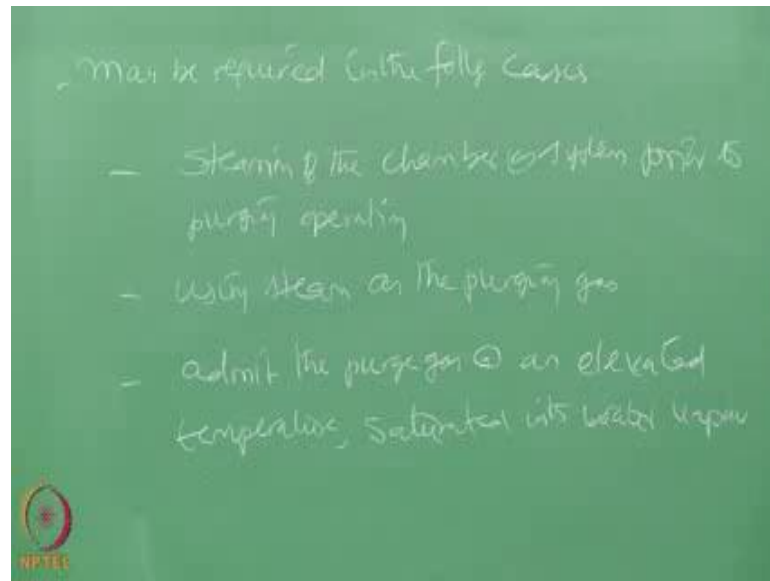 May be required in the follg cases
- Steaming the chamber or system prior to
purging operating
- using steam as the purging gas
- admit the purge gas @ an elevated
temperature, saturated with water vapour
NPTEL